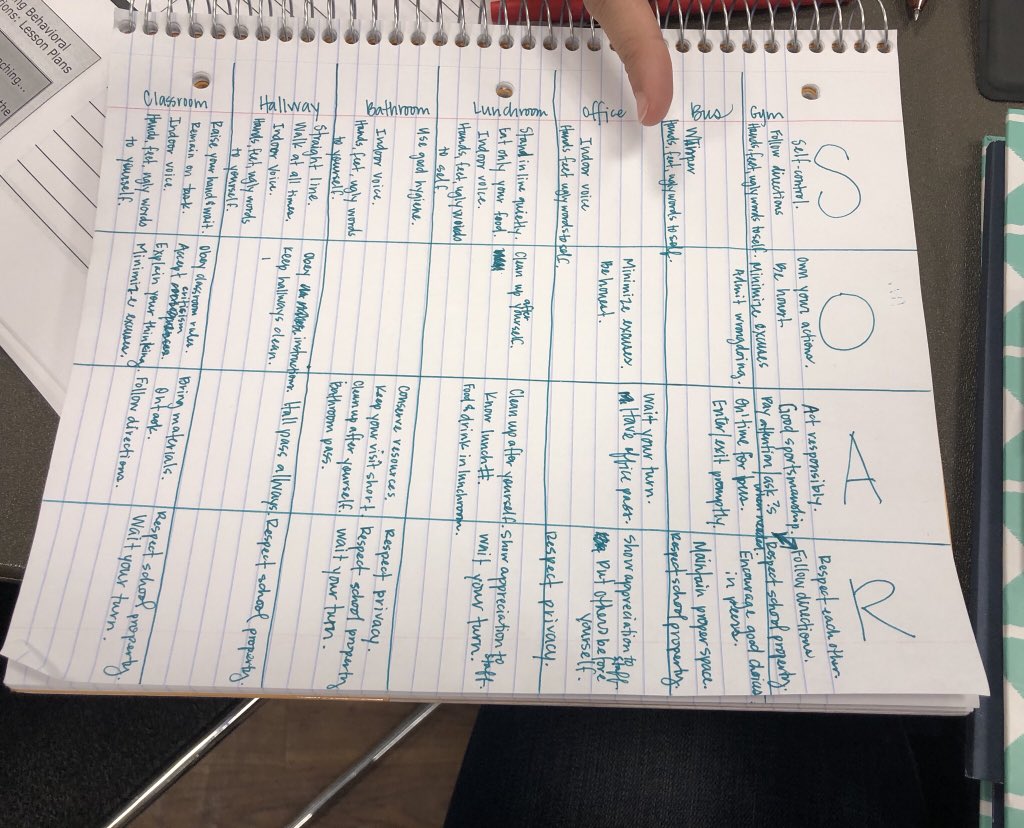 ng Behavioral
ions: Lesson Plans
aching...
the
S
O
A
R
Self-control.
Own your actions.
Act responsibly.
Respect each other.
Gym
Follow directions
Hands, feet, ugly words to self.
Be honest.
Minimize excuses
Good sportsmanship.
Pay attention/ask ?s
when needed.
Follow directions.
Respect school property.
Bus
Whisper
Hands, feet, ugly words to self.
Admit wrongdoing.
On time for bus.
Enter/exit promptly.
Encourage good choices
in peers.
Maintain proper space.
Respect school property.
Office
Indoor voice
Hands, feet, ugly words to self.
Minimize excuses.
Be honest.
Wait your turn.
Have office pass.
Show appreciation to
staff.
Put others before
yourself.
Respect privacy.
Lunchroom
Stand in line quietly.
Eat only your food.
Indoor voice.
Hands, feet, ugly words
to self
Clean up after
yourself.
Clean up after yourself.
Know lunch #
Food & drink in lunchroom.
Show appreciation to
staff.
Wait your turn.
Bathroom
Use good hygiene.
Indoor voice.
Hands, feet, ugly words
to yourself.
Conserve resources
Keep your visit short
Clean up after yourself.
Bathroom pass.
Respect privacy.
Respect school property
Wait your turn.
Hallway
Straight line.
Walk at all times.
Indoor voice.
Hands, feet, ugly words
to yourself.
Obey instructions.
Keep hallways clean.
Hall pass always.
Respect school property.
Classroom
Raise your hand & wait.
Remain on task.
Indoor voice.
Hands, feet, ugly words
to yourself.
Obey classroom rules.
Accept criticism
Explain your thinking.
Minimize excuses.
Bring materials.
On task.
Follow directions.
Respect school property
Wait your turn.